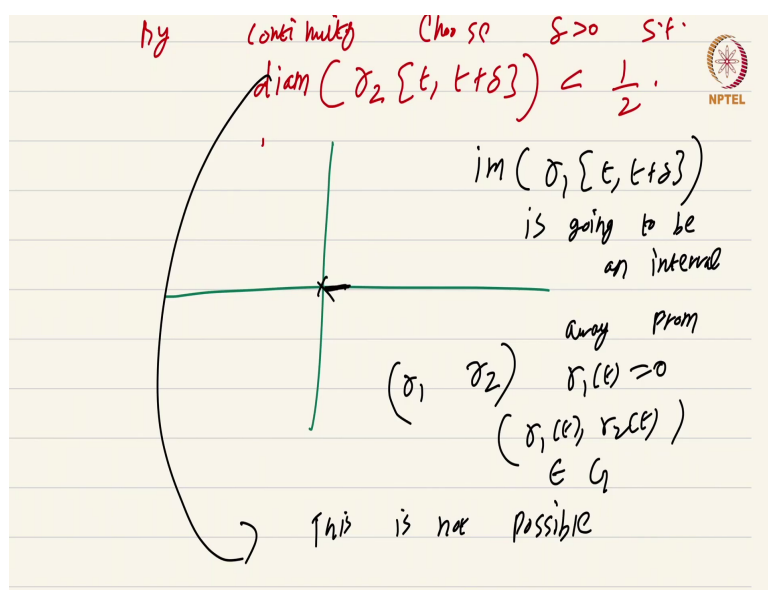 By continuity Choose δ>0 s.t.
diam(γ₂[t, t+δ]) < 1/2.
NPTEL
im(γ₁[t, t+δ])
is going to be
an interval
away from
(γ₁ γ₂) γ₁(t)=0
(γ₁(t), γ₂(t))
∈ G
This is not possible